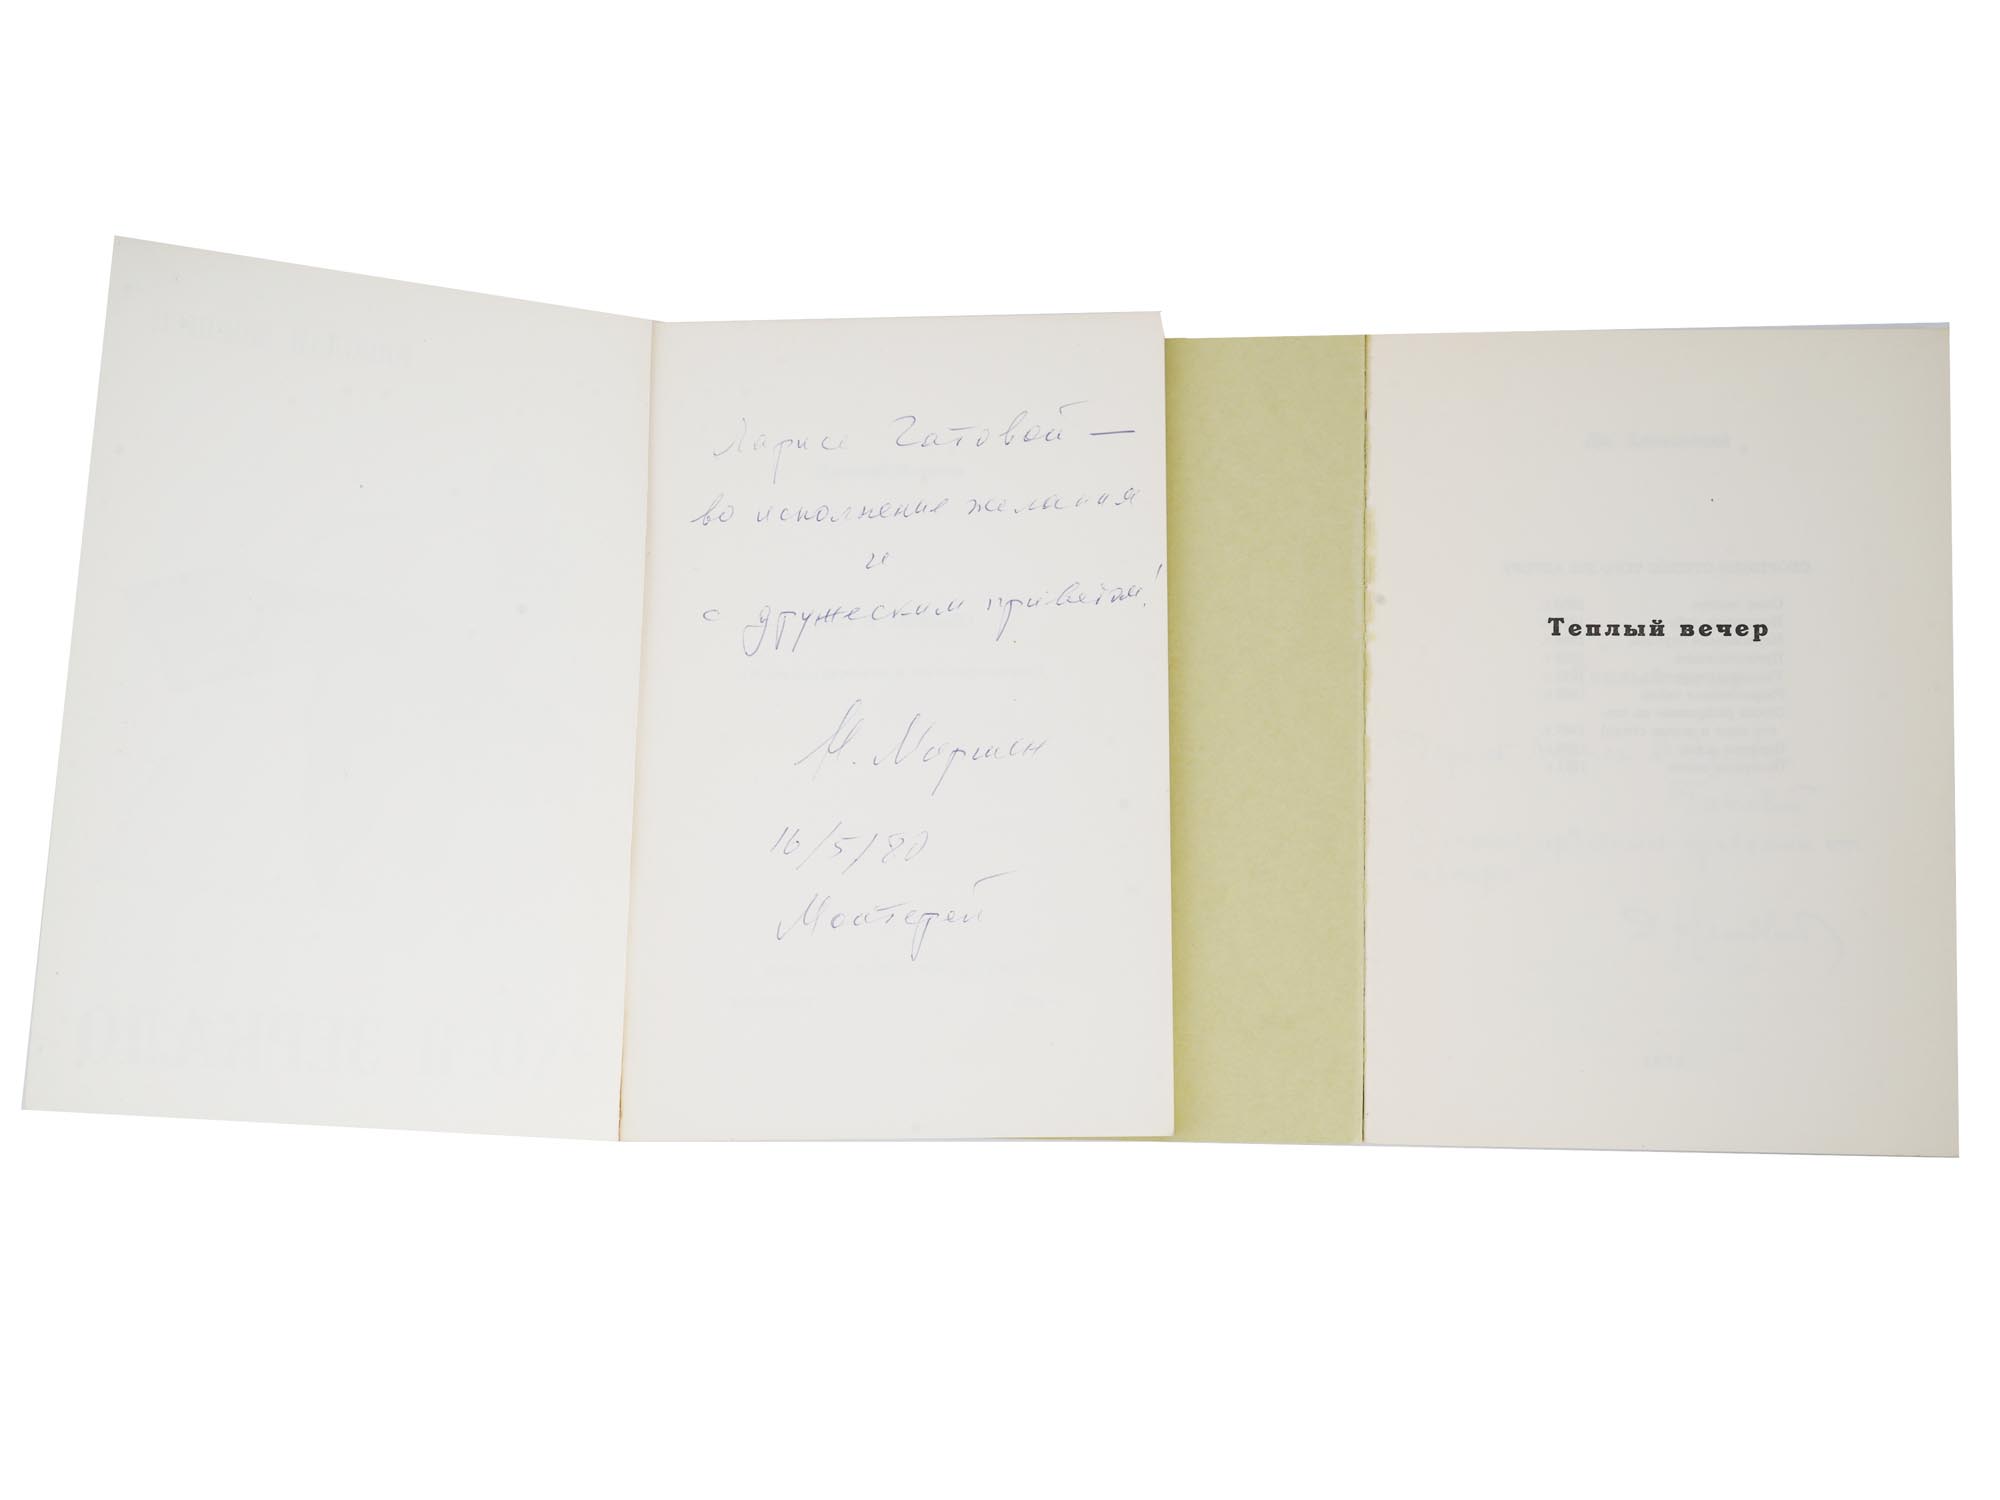 Ларисе Гатовой —
во исполнение желания
и
с дружеским приветом!
Н. Моршен
16/5/80
Монтерей
Теплый вечер